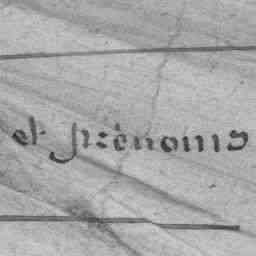 et prénoms